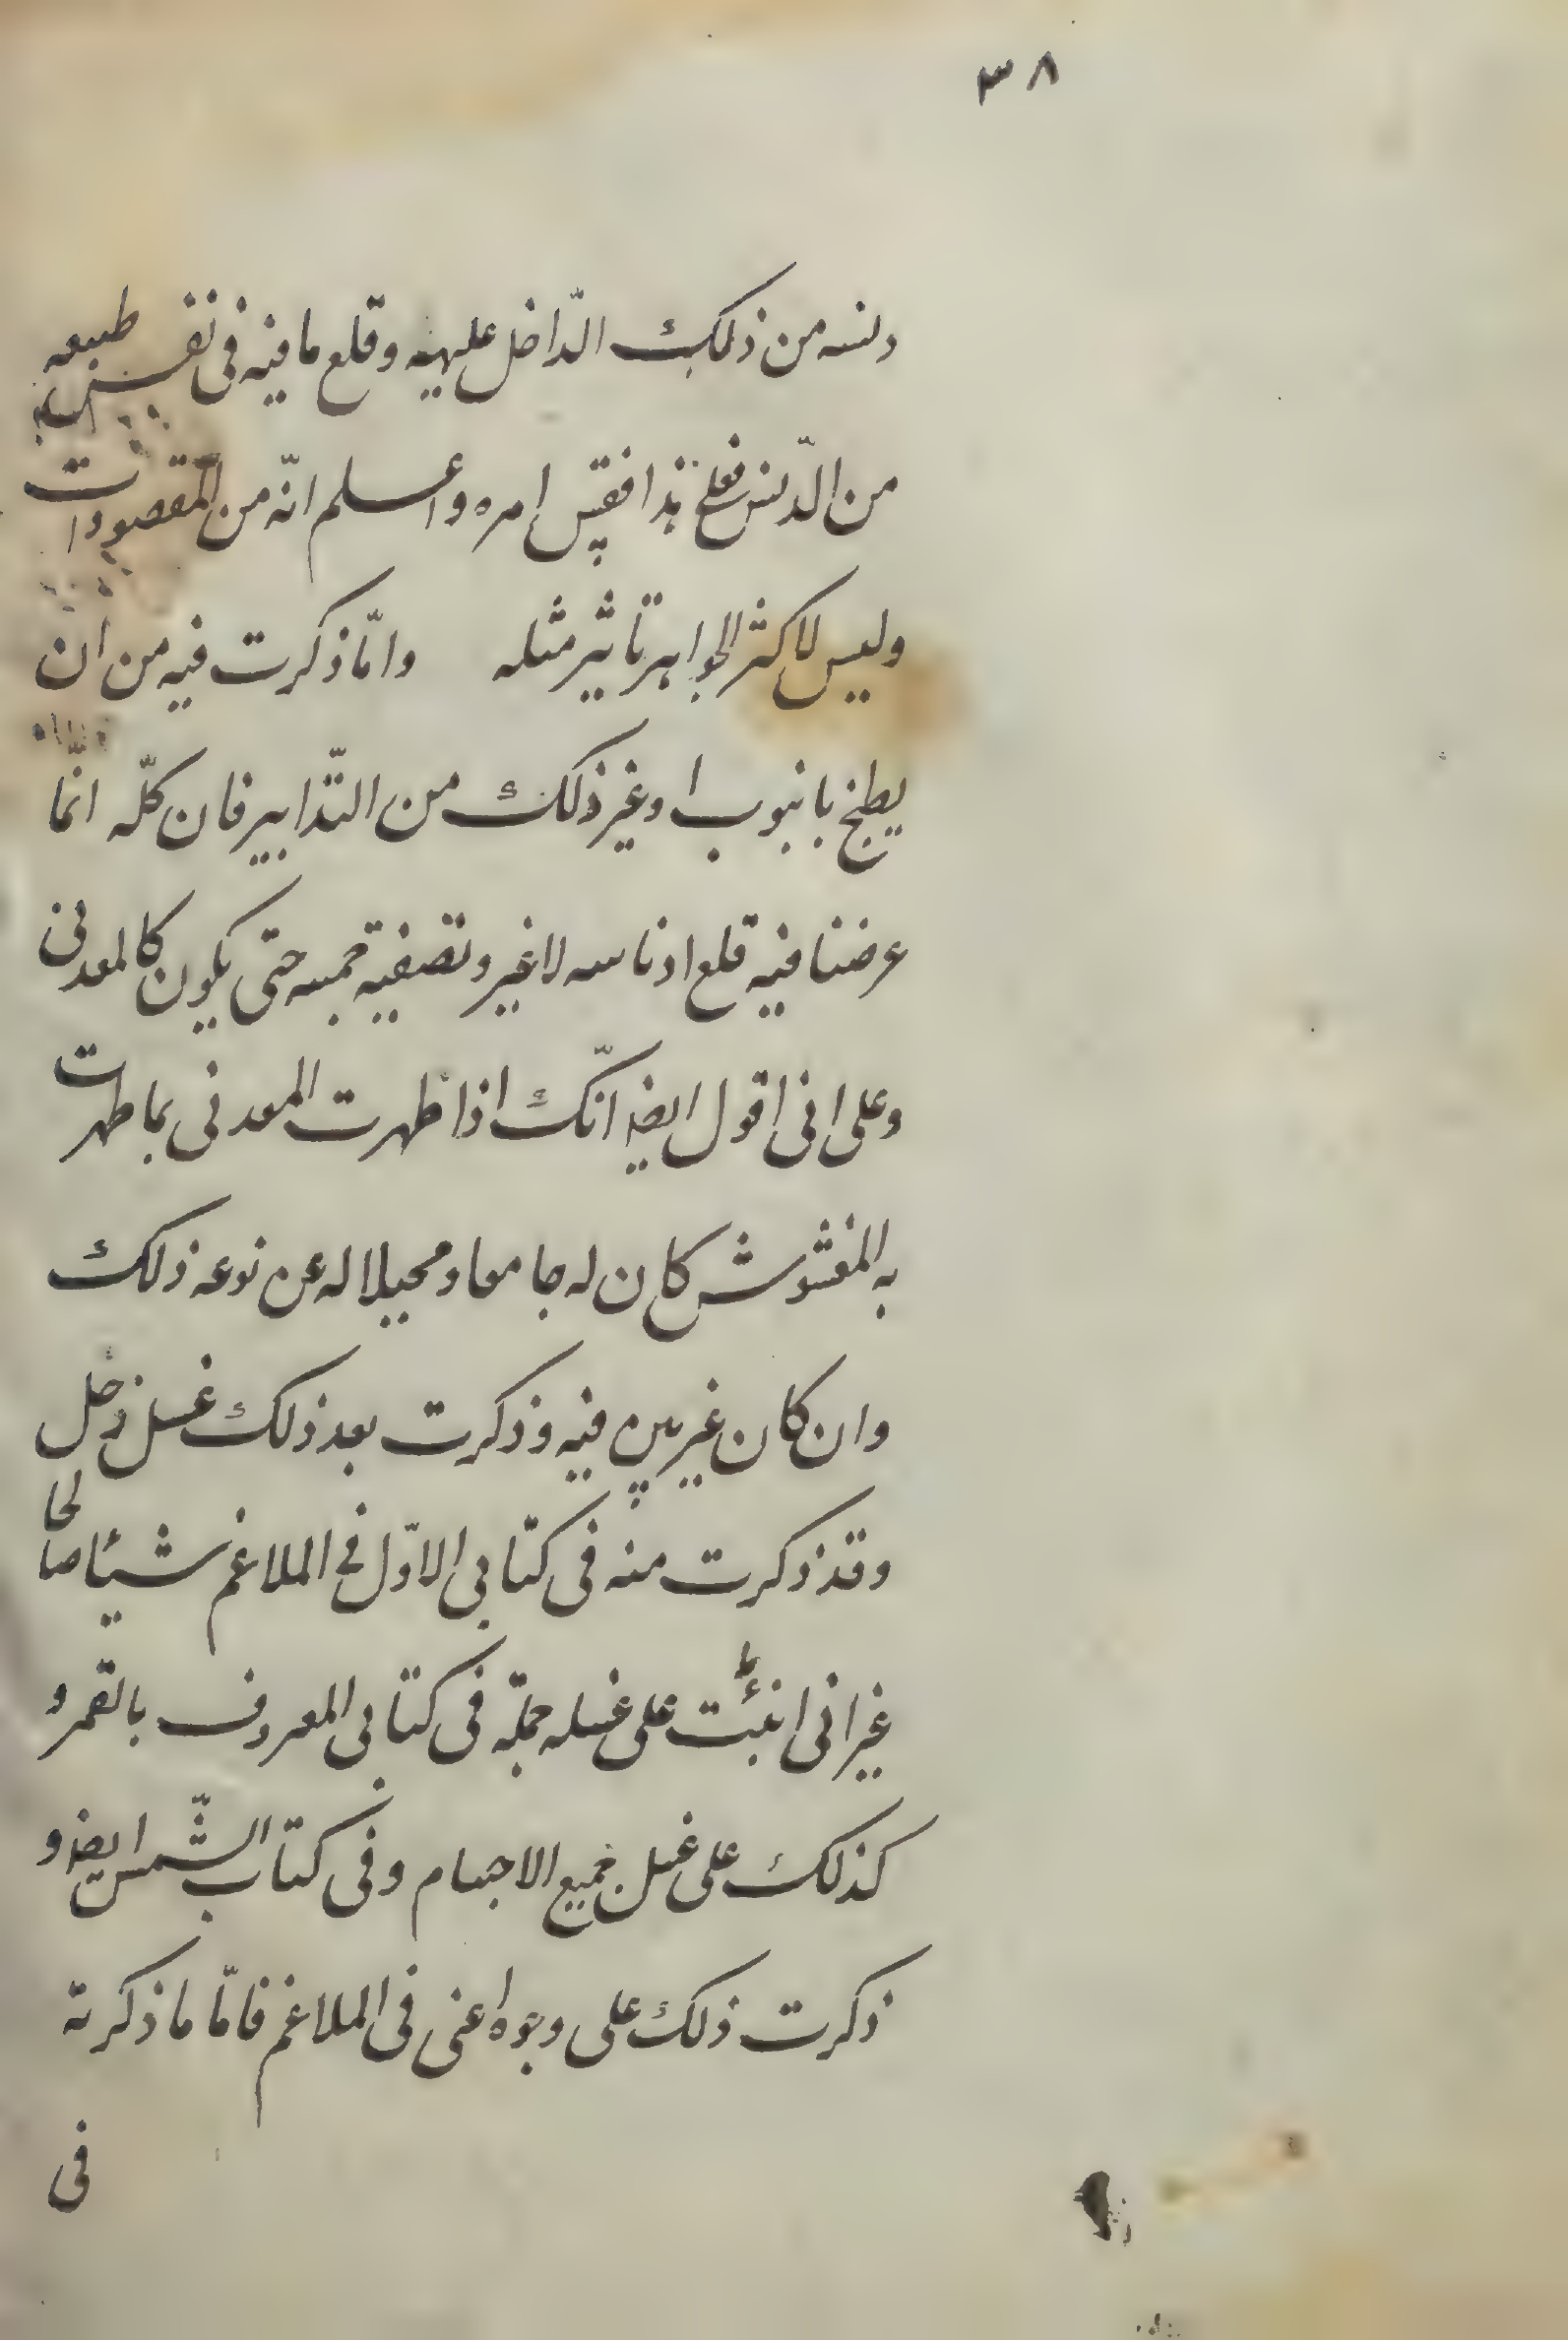 ٣٨
دنسه من ذلك الدّاخل عليه وقلع ما فيه فى نفس طبيعه
من الدّنس فعلى هذا فقس امره واعلم انّه من المقصودات
وليس لاكثر الجواهر تاثير مثله وامّا ذكرت فيه من ان
يطبخ بانبوب ا وغير ذلك من التّدابير فان كلّه انّما
عرضنا فيه قلع ادناسه لا غير وتصفيه جسمه حتى يكون كالمعدنى
وعلى انى اقول ايضا انّك اذا طهرت المعدنى بما طهرت
به المغشوش كان له جامعا ومحيلا له عن نوعه ذلك
وان كان غير بين فيه وذكرت بعد ذلك غسل زحل
وقد ذكرت منه فى كتابى الاوّل فى الملاغم شيئا صالحا
غير انى على غسله جملة فى كتابى المعروف بالقمر و
كذلك على غسل جميع الاجسام وفى كتاب الشّمس ايضا و
ذكرت ذلك على وجوه اعنى فى الملاغم فامّا ما ذكرته
فى